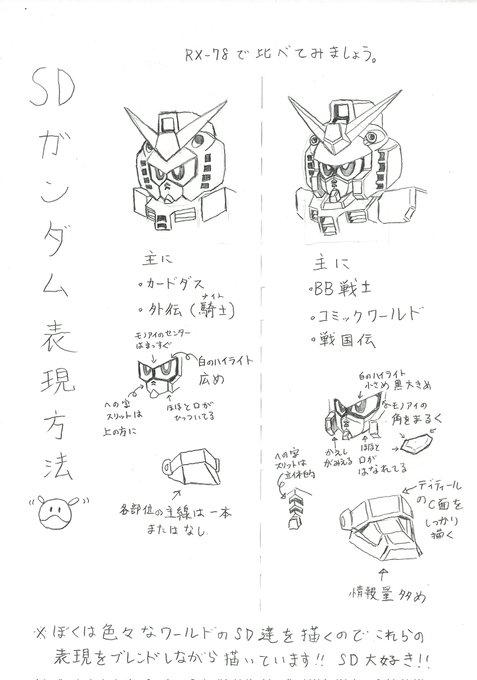 RX-78で比べてみましょう。
SDガンダム表現方法
主に
・カードダス
・外伝(騎士)
ナイト
モノアイのセンター
はまっすぐ
白のハイライト
広め
への字
スリットは
上の方に
ほほと口が
ひっついてる
各部位の主線は一本
またはなし
主に
・BB戦士
・コミックワールド
・戦国伝
白のハイライト
小さめ 黒大きめ
モノアイの
角をまるく
への字
スリットは
立体的
かえし
がみえる
ほほと
口が
はなれてる
ディティール
のC面を
しっかり
描く
情報量多め
※ぼくは色々なワールドのSD達を描くのでこれらの
表現をブレンドしながら描いています!! SD大好き!!